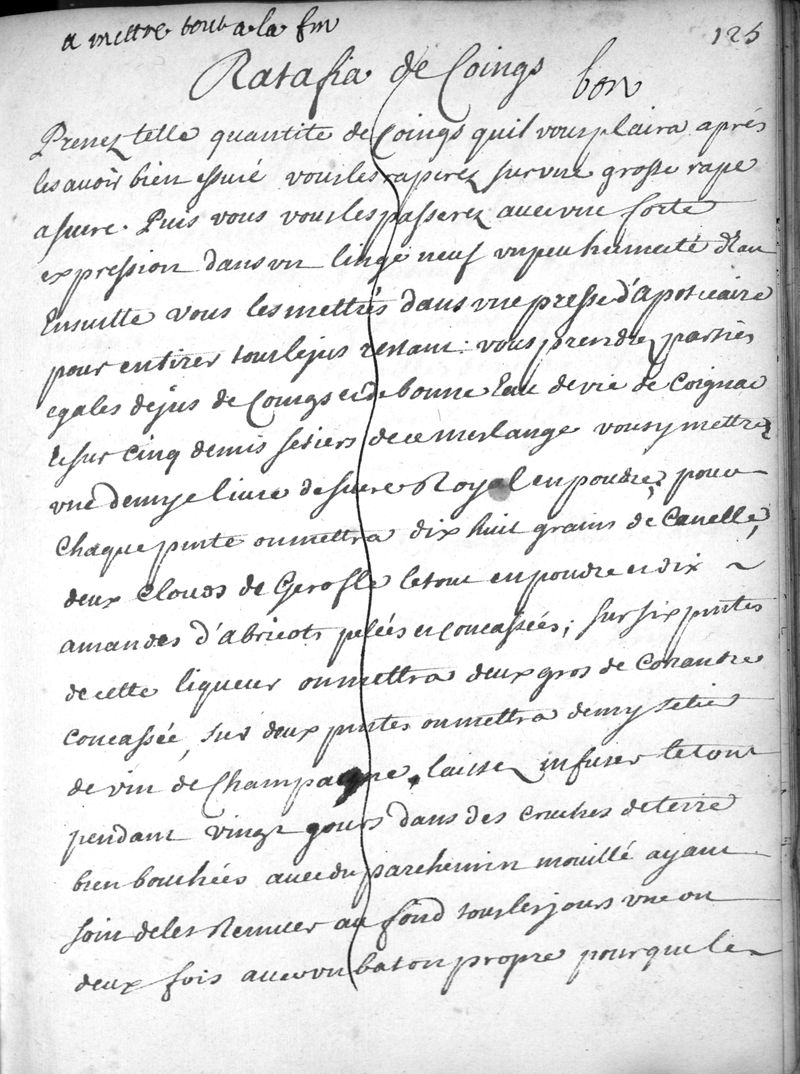 a mettre tout a la fin
125
Ratafia de Coings bon
Prenez telle quantité de Coings quil vous plaira aprés
les avoir bien essuié vous les raperez sur une grosse rape
a sucre. Puis vous vous les passerez avec une forte
expression dans un linge neuf un peu humecté d'eau
Ensuitte vous les mettrés dans une presse d'apoticaire
pour en tirer tous le jus restant: vous prendrez parties
egales de jus de Coings et de bonne Eau de vie de Coignac
Et sur cinq demis setiers de ce meslange vous y mettrez
une demye livre de sucre Royal en poudre, pour
chaque pinte on mettra dix huit grains de Canelle,
deux clouds de Gerofle le tout en poudre et dix ~
amandes d'abricots pelées et concassées; sur six pintes
de cette liqueur on mettra deux gros de Coriandre
concassée, sur deux pintes on mettra demy setier
de vin de Champagne, laissez infuser le tout
pendant vingt jours dans des cruches de terre
bien bouchées avec du parchemin mouillé ayant
soin de les Remuer au fond tous les jours une ou
deux fois avec un baton propre pour que le